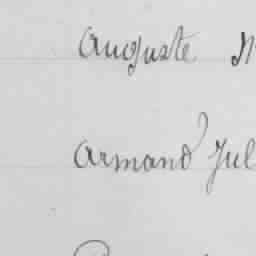 Auguste
Armand Jul